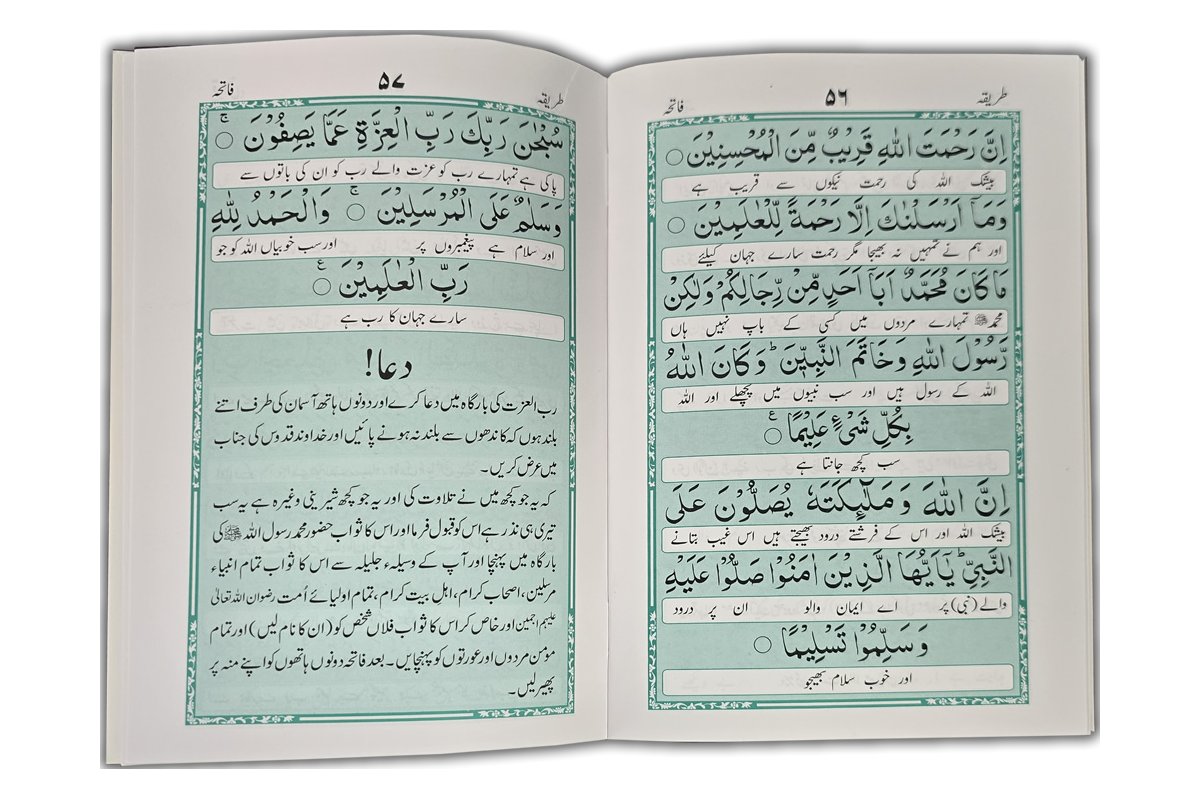 طریقہ ۵۶ فاتحہ
اِنَّ رَحْمَتَ اللّٰهِ قَرِيْبٌ مِّنَ الْمُحْسِنِيْنَ ○
بیشک اللہ کی رحمت نیکوں سے قریب ہے
وَمَآ اَرْسَلْنٰكَ اِلَّا رَحْمَةً لِّلْعٰلَمِيْنَ ○
اور ہم نے تمہیں نہ بھیجا مگر رحمت سارے جہان کیلئے
مَا كَانَ مُحَمَّدٌ اَبَآ اَحَدٍ مِّنْ رِّجَالِكُمْ وَلٰكِنْ
محمد ﷺ تمہارے مردوں میں کسی کے باپ نہیں ہاں
رَّسُوْلَ اللّٰهِ وَخَاتَمَ النَّبِيّٖنَ ؕ وَكَانَ اللّٰهُ
اللہ کے رسول ہیں اور سب نبیوں میں پچھلے اور اللہ
بِكُلِّ شَيْءٍ عَلِيْمًا ○ ع
سب کچھ جانتا ہے
اِنَّ اللّٰهَ وَ مَلٰٓئِكَتَهٗ يُصَلُّوْنَ عَلَى
بیشک اللہ اور اس کے فرشتے درود بھیجتے ہیں اس غیب بتانے
النَّبِيِّ ؕ يٰۤاَيُّهَا الَّذِيْنَ اٰمَنُوْا صَلُّوْا عَلَيْهِ
والے (نبی) پر اے ایمان والو ان پر درود
وَ سَلِّمُوْا تَسْلِيْمًا ○
اور خوب سلام بھیجو
طریقہ ۵۷ فاتحہ
سُبْحٰنَ رَبِّكَ رَبِّ الْعِزَّةِ عَمَّا يَصِفُوْنَ ○ ج
پاکی ہے تمہارے رب کو عزت والے رب کو ان کی باتوں سے
وَسَلٰمٌ عَلَى الْمُرْسَلِيْنَ ○ ج وَالْحَمْدُ لِلّٰهِ
اور سلام ہے پیغمبروں پر اور سب خوبیاں اللہ کو جو
رَبِّ الْعٰلَمِيْنَ ○ ع
سارے جہان کا رب ہے
دعا!
رب العزت کی بارگاہ میں دعا کرے اور دونوں ہاتھ آسمان کی طرف اتنے
بلند ہوں کہ کاندھوں سے بلند نہ ہونے پائیں اور خداوند قدوس کی جناب
میں عرض کریں۔
کہ یہ جو کچھ میں نے تلاوت کی اور یہ جو کچھ شیرینی وغیرہ ہے یہ سب
تیری ہی نذر ہے اس کو قبول فرما اور اس کا ثواب حضور محمد رسول اللہ ﷺ کی
بارگاہ میں پہنچا اور آپ کے وسیلہء جلیلہ سے اس کا ثواب تمام انبیاء
مرسلین، اصحاب کرام، اہل بیت کرام، تمام اولیائے اُمت رضوان اللہ تعالیٰ
علیہم اجمعین اور خاص کر اس کا ثواب فلاں شخص کو (ان کا نام لیں) اور تمام
مؤمن مردوں اور عورتوں کو پہنچایں۔ بعد فاتحہ دونوں ہاتھوں کو اپنے منہ پر
پھیر لیں۔